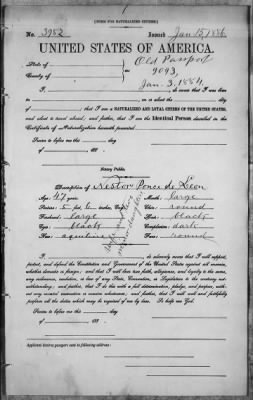 [FORM FOR NATURALIZED CITIZEN.]
No. 3982 Issued Jan 15, 1886
UNITED STATES OF AMERICA.
State of
County of
ss
Old Passport
9093,
Jan. 3. 1884,
I, , do swear that I was born
in , on or about the day
of ; that I am a NATURALIZED AND LOYAL CITIZEN OF THE UNITED STATES,
and about to travel abroad; and further, that I am the Identical Person described in the
Certificate of Naturalization herewith presented.
Sworn to before me this day
of , 188 .
Notary Public.
Description of Nestor Ponce de Leon
Age: 47 years. Mouth: large
Stature: 5 feet, 6 inches, Eng. Chin: round
Forehead: large Hair: black
Eyes: black Complexion: dark
Nose: aquiline Face: round
I, , do solemnly swear that I will support,
protect, and defend the Constitution and Government of the United States against all enemies,
whether domestic or foreign; and that I will bear true faith, allegiance, and loyalty to the same,
any ordinance, resolution, or law of any State, Convention, or Legislature to the contrary not-
withstanding; and further, that I do this with a full determination, pledge, and purpose, with-
out any mental reservation or evasion whatsoever; and further, that I will well and faithfully
perform all the duties which may be required of me by law. So help me God.
Sworn to before me this day
of , 188 .
Applicant desires passport sent to following address: